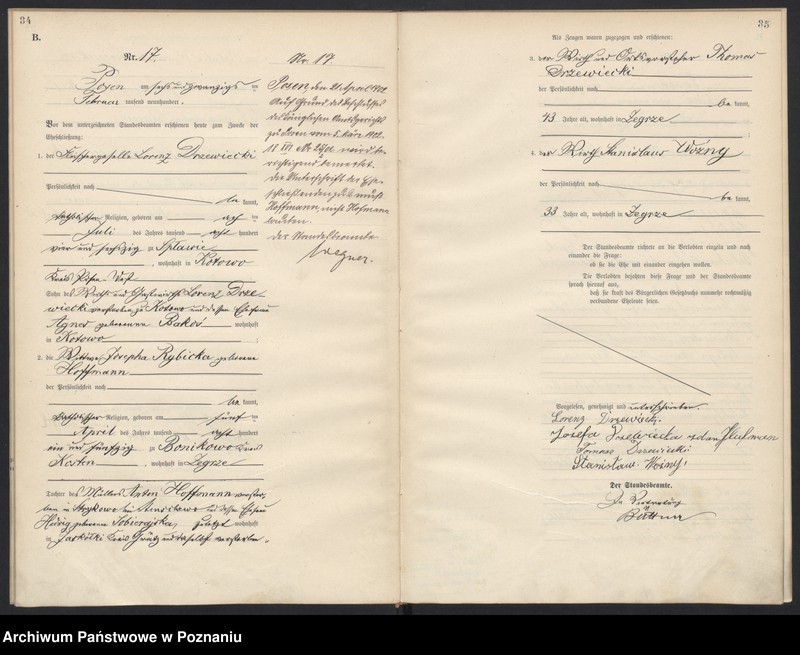 34
B.
Nr. 17.
Posen am sechs und zwanzigsten
Februar tausend neunhundert.
Vor dem unterzeichneten Standesbeamten erschienen heute zum Zwecke der
Eheschließung:
1. der Lorenz Drzewiecki
der Persönlichkeit nach
be kannt,
katholischer Religion, geboren am acht
Juli des Jahres tausend acht hundert
vier und sechszig zu Splawie
, wohnhaft in Kotowo
Kreis Posen-West
Sohn des Wirths und Lorenz Drze-
wiecki verstorben zu Kotowo und dessen Ehefrau
Agnes geborenen Bakos wohnhaft
in Kotowo ;
2. die Wittwe Josepha Rybicka geborene
Hoffmann
der Persönlichkeit nach
be kannt,
katholischer Religion, geboren am fünf
April des Jahres tausend acht hundert
ein und fünfzig zu Bonikowo Kreis
Kosten, wohnhaft in Zegrze
Tochter des Müllers Anton Hoffmann verstor-
ben in bei und dessen Ehefrau
Hedwig geborenen Sobierajska, zuletzt wohnhaft
in Jaskolki Kreis Grätz und daselbst verstorben.
Nr. 17
Posen, den 21 April 1902
Auf Grund des Beschlusses
des Königlichen Amtsgerichts
zu Posen vom 5. März 1902
wird be-
richtigend bemerkt:
die Unterschrift der Ehe-
schließenden zu 2 muß
Hoffmann, nicht Hofmann
lauten.
Der Standesbeamte
Wegner.
35
Als Zeugen waren zugezogen und erschienen:
3. der Wirth und Ortsvorsteher Thomas
Drzewiecki
der Persönlichkeit nach
be kannt,
43 Jahre alt, wohnhaft in Zegrze
;
4. der Wirth Stanislaus Wozny
der Persönlichkeit nach
be kannt,
33 Jahre alt, wohnhaft in Zegrze
Der Standesbeamte richtete an die Verlobten einzeln und nach
einander die Frage:
ob sie die Ehe mit einander eingehen wollen.
Die Verlobten bejahten diese Frage und der Standesbeamte
sprach hierauf aus,
daß sie kraft des Bürgerlichen Gesetzbuchs nunmehr rechtmäßig
verbundene Eheleute seien.
Vorgelesen, genehmigt und unterschrieben.
Lorenz Drzewiecki.
Josefa Drzewiecka z domu Hofman
Tomasz Drzewiecki
Stanisław Woźny
Der Standesbeamte.
In Vertretung
Büttner
Archiwum Państwowe w Poznaniu